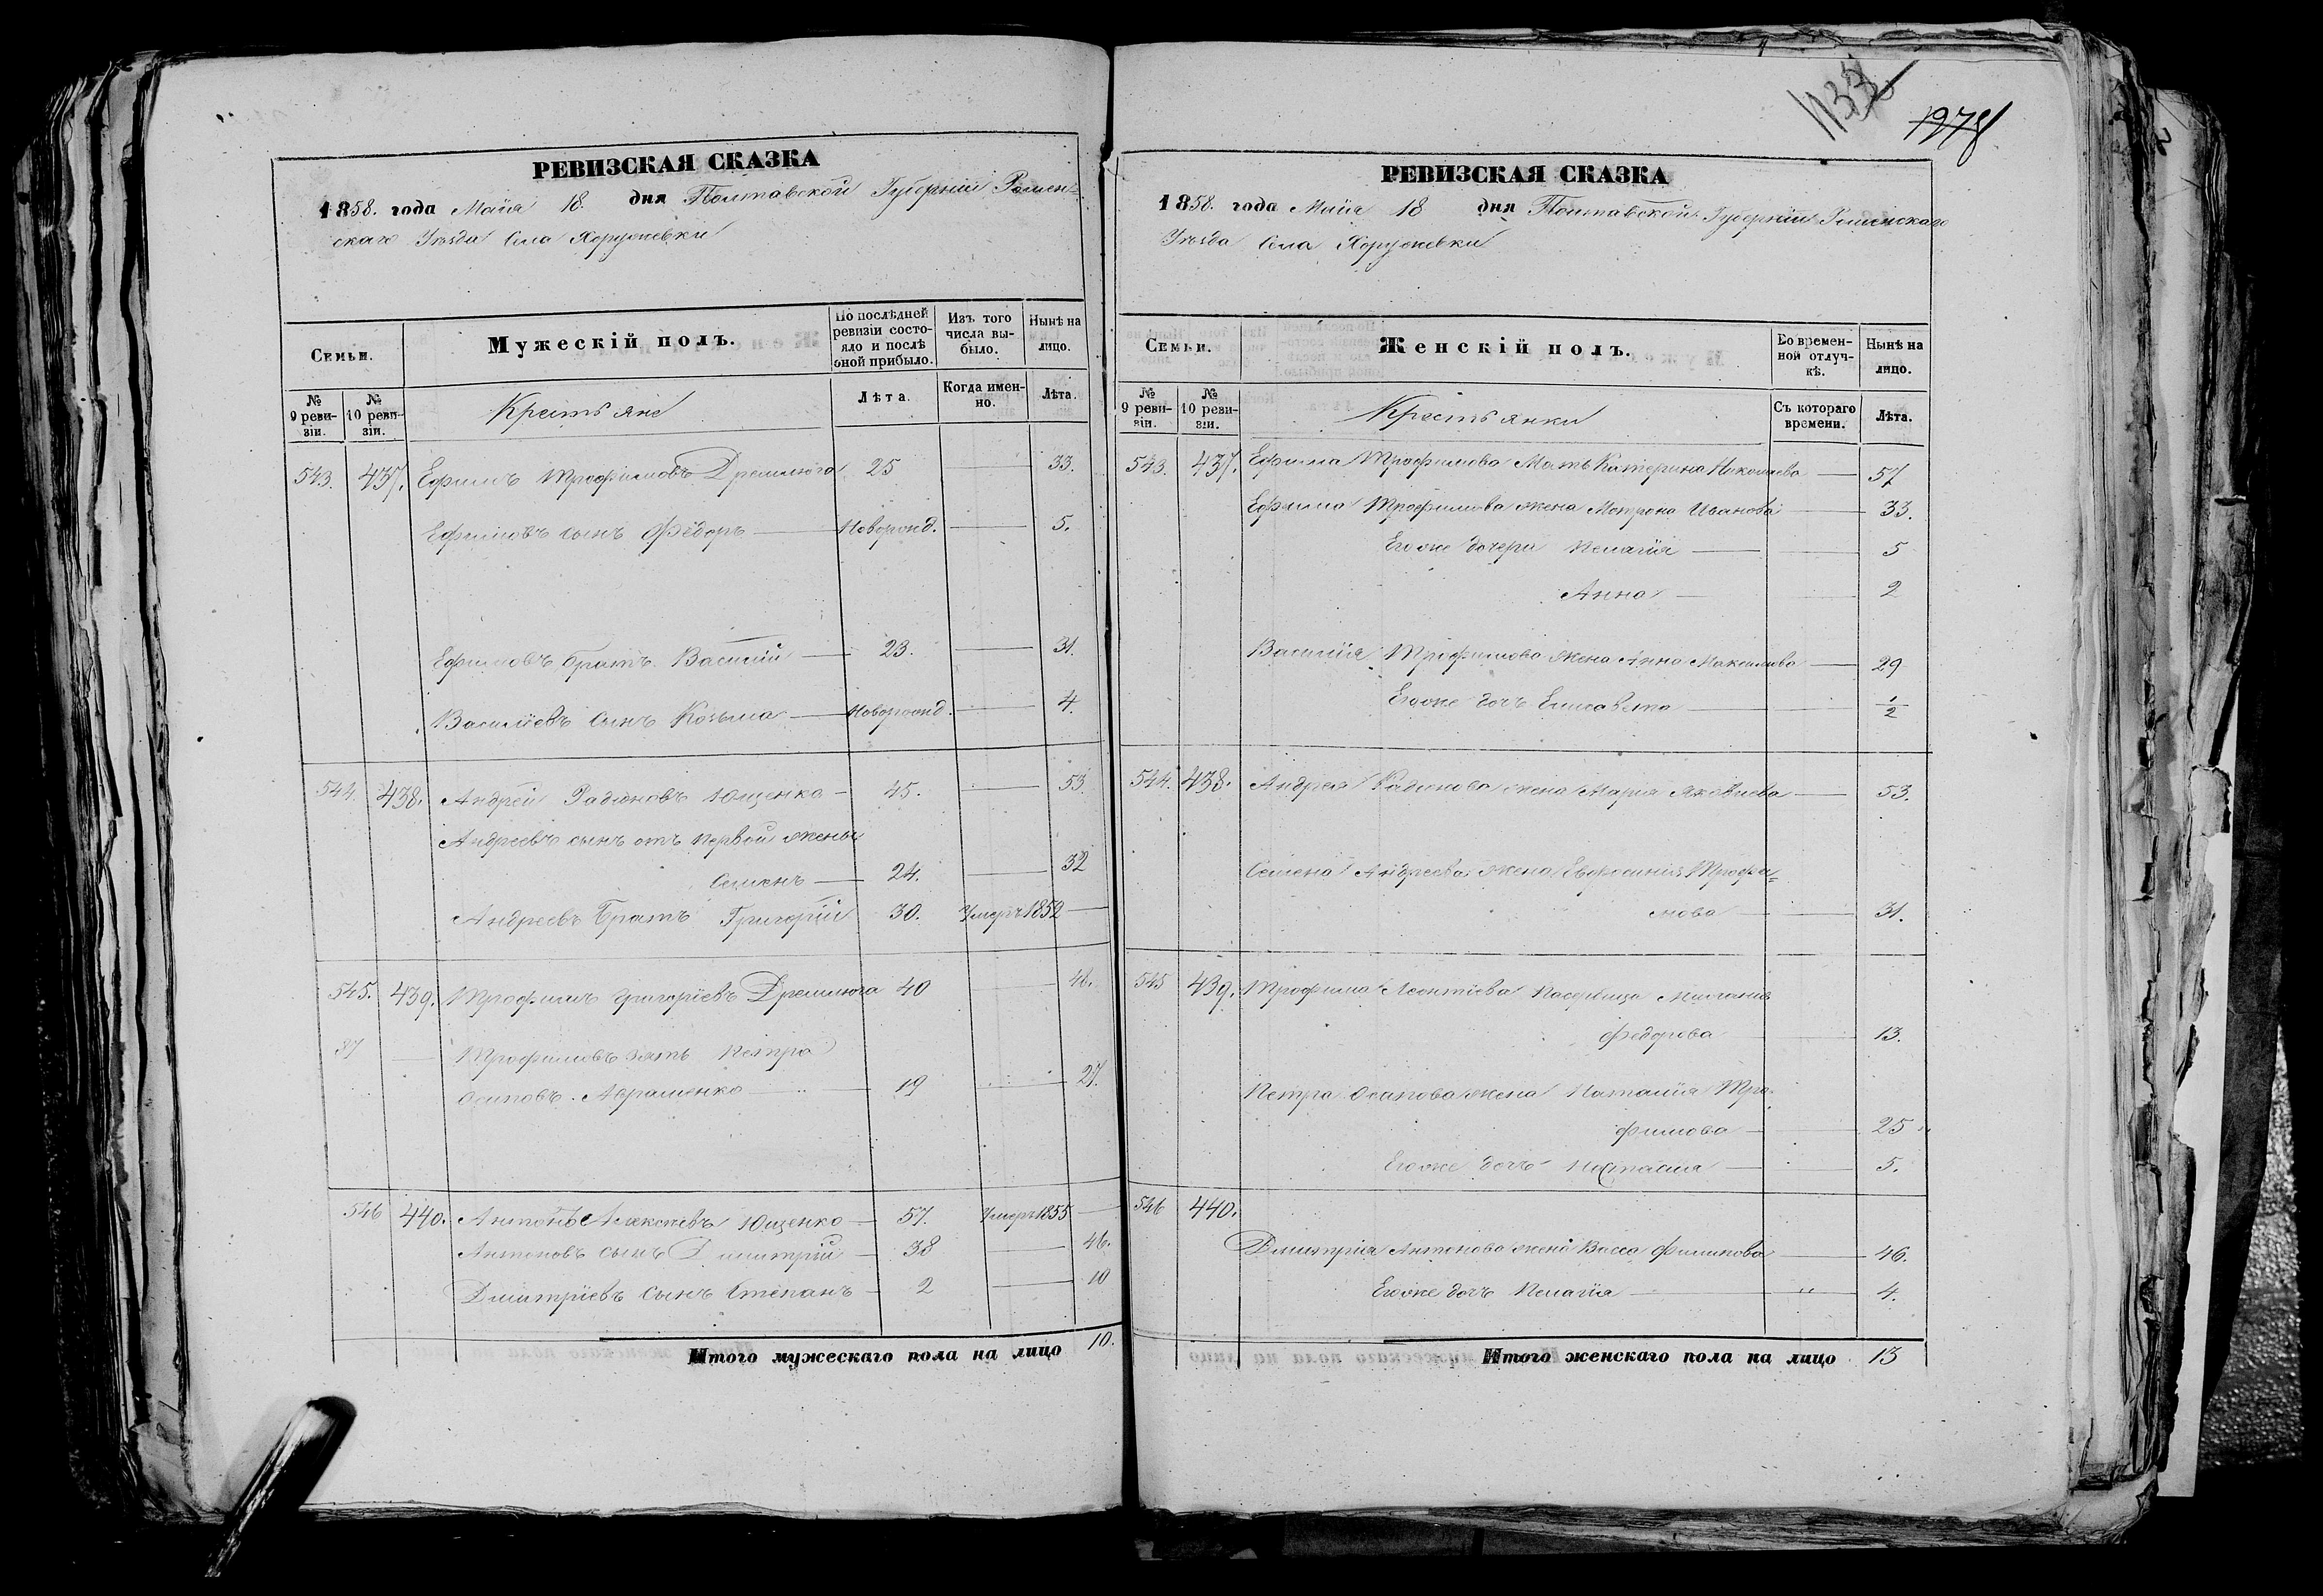 РЕВИЗСКАЯ СКАЗКА
1858. года Маія 18. дня Полтавской Губерніи Ромен-
скаго Уѣзда Села Хоружевки
Семьи.
Мужескій полъ.
По послѣдней ревизіи состояло и послѣ оной прибыло.
Изъ того числа выбыло.
Нынѣ на лицо.
№ 9 ревизіи.
№ 10 ревизіи.
Крестьяне
Лѣта.
Когда именно.
Лѣта.
543. 437. Ефимъ Трофимовъ Дремлюга 25 33.
Ефимовъ сынъ Фёдоръ Новорожд. 5.
Ефимовъ братъ Василій 23. 31.
Василіевъ сынъ Козьма Новорожд. 4.
544. 438. Андрей Радіоновъ Ющенко 45. 53.
Андреевъ сынъ отъ первой жены
Семенъ 24. 32
Андреевъ братъ Григорій 30. Умеръ 1852
545. 439. Трофимъ Григоріевъ Дремлюга 40 48.
37 Трофимовъ зять Петро
Осиповъ Авраменко 19 27.
546 440. Антонъ Алексѣевъ Ющенко 57. Умеръ 1855
Антоновъ сынъ Дмитрій 38 46.
Дмитріевъ сынъ Степанъ 2 10
Итого мужескаго пола на лицо 10.
1978
РЕВИЗСКАЯ СКАЗКА
1858. года Маія 18 дня Полтавской Губерніи Роменскаго
Уѣзда Села Хоружевки
Семьи.
Женскій полъ.
Во временной отлучкѣ.
Нынѣ на лицо.
№ 9 ревизіи.
№ 10 ревизіи.
Крестьянки
Съ котораго времени.
Лѣта.
543. 437. Ефима Трофимова Мать Катерина Николаева 57
Ефима Трофимова жена Мотрона Иванова 33.
Егоже дочери Пелагія 5
Анна 2
Василія Трофимова жена Анна Максимова 29
Егоже дочь Елисавета 1/2
544. 438. Андрея Радіонова жена Марія Яковлева 53.
Семена Андреева жена Евфросинія Трофи-
мова 31.
545 439. Трофима Леонтіева Пасербица
Федорова 13.
Петра Осипова жена Наталія Тро-
фимова 25
Егоже дочь Настасія 5.
546 440.
Дмитрія Антонова жена Васса Филипова 46.
Егоже дочь Пелагія " 4.
Итого женскаго пола на лицо 13